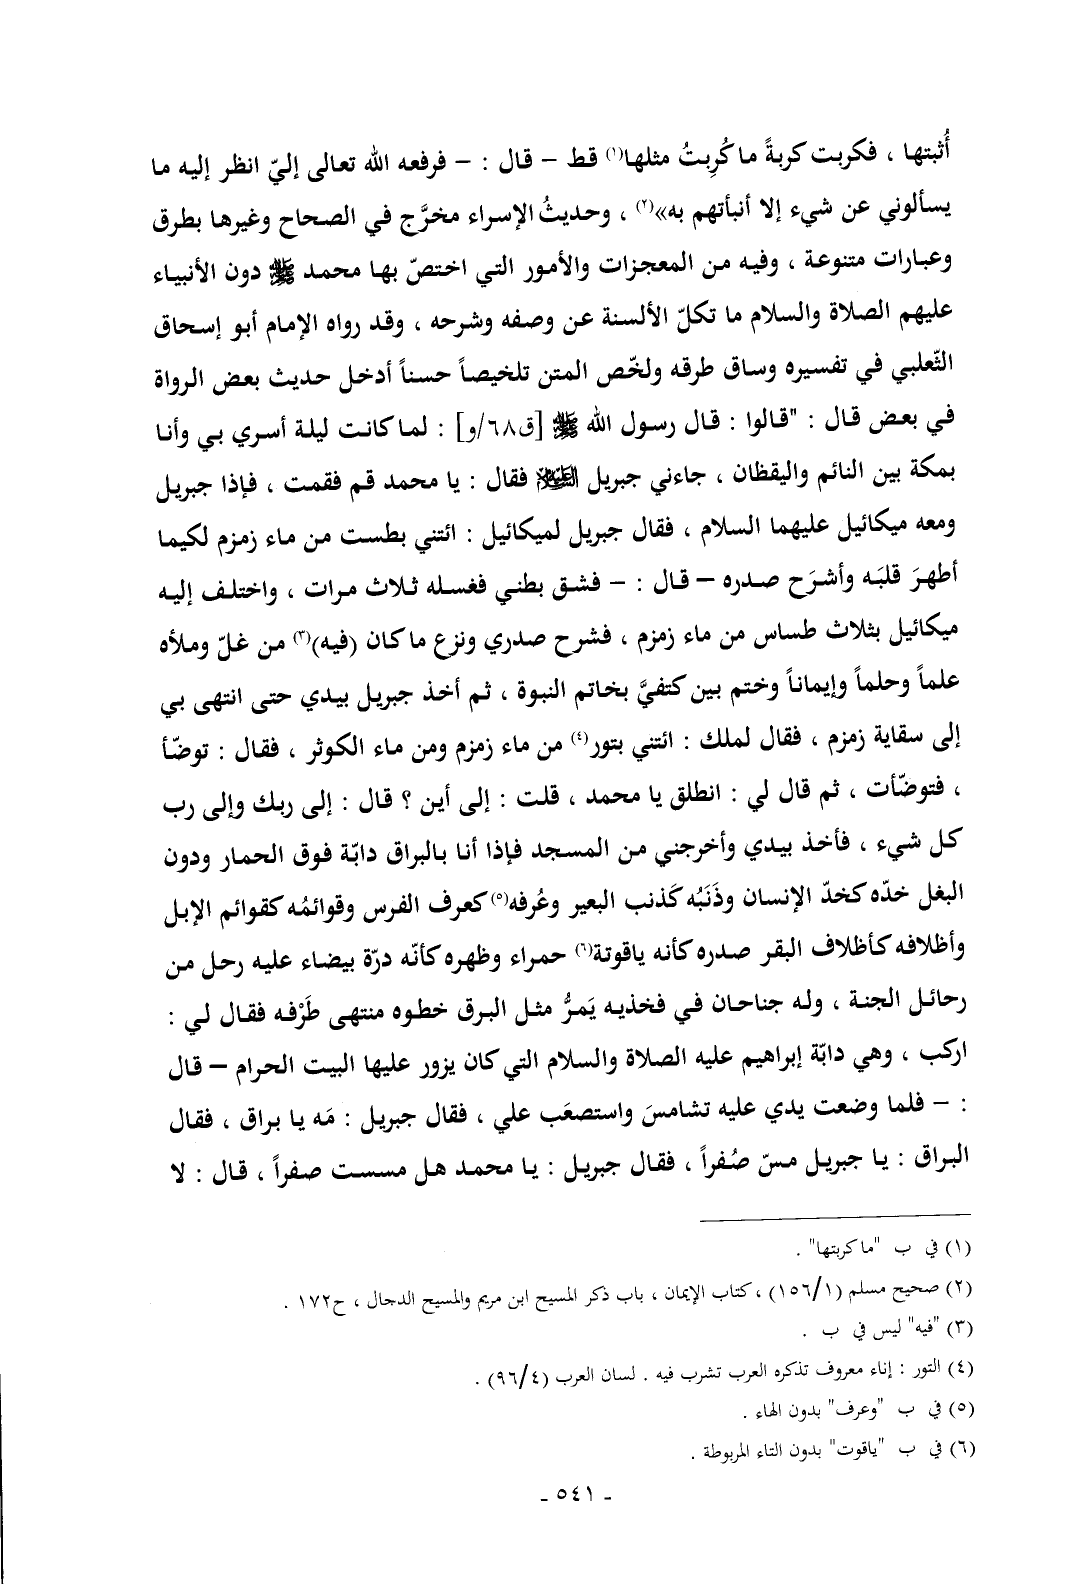 أُثبتها ، فكربت كربةً ما كُرِبتُ مثلها(١) قط – قال : – فرفعه الله تعالى إليّ انظر إليه ما
يسألوني عن شيء إلا أنبأتهم به»(٢) ، وحديثُ الإسراء مخرَّج في الصحاح وغيرها بطرق
وعبارات متنوعة ، وفيه من المعجزات والأمور التي اختصّ بها محمد ﷺ دون الأنبياء
عليهم الصلاة والسلام ما تكلّ الألسنة عن وصفه وشرحه ، وقد رواه الإمام أبو إسحاق
الثّعلبي في تفسيره وساق طرقه ولخّص المتن تلخيصاً حسناً أدخل حديث بعض الرواة
في بعض قال : "قالوا : قال رسول الله ﷺ [ق٦٨/و] : لما كانت ليلة أسري بي وأنا
بمكة بين النائم واليقظان ، جاءني جبريل العليه السلام فقال : يا محمد قم فقمت ، فإذا جبريل
ومعه ميكائيل عليهما السلام ، فقال جبريل لميكائيل : ائتني بطست من ماء زمزم لكيما
أطهرَ قلبَه وأشرَح صدره – قال : – فشق بطني فغسله ثلاث مرات ، واختلف إليه
ميكائيل بثلاث طساس من ماء زمزم ، فشرح صدري ونزع ما كان (فيه)(٣) من غلّ وملأه
علماً وحلماً وإيماناً وختم بين كتفيَّ بخاتم النبوة ، ثم أخذ جبريل بيدي حتى انتهى بي
إلى سقاية زمزم ، فقال لملك : ائتني بتور(٤) من ماء زمزم ومن ماء الكوثر ، فقال : توضّأ
، فتوضّأت ، ثم قال لي : انطلق يا محمد ، قلت : إلى أين ؟ قال : إلى ربك وإلى رب
كل شيء ، فأخذ بيدي وأخرجني من المسجد فإذا أنا بالبراق دابّة فوق الحمار ودون
البغل خدّه كخدّ الإنسان وذَنَبُه كَذنب البعير وعُرفه(٥) كعرف الفرس وقوائمُه كقوائم الإبل
وأظلافه كأظلاف البقر صدره كأنه ياقوتة(٦) حمراء وظهره كأنّه درّة بيضاء عليه رحل من
رحائل الجنة ، وله جناحان في فخذيه يَمرُّ مثل البرق خطوه منتهى طَرْفه فقال لي :
اركب ، وهي دابّة إبراهيم عليه الصلاة والسلام التي كان يزور عليها البيت الحرام – قال
: – فلما وضعت يدي عليه تشامسَ واستصعَب علي ، فقال جبريل : مَه يا براق ، فقال
البراق : يا جبريل مسّ صُفراً ، فقال جبريل : يا محمد هل مسست صفراً ، قال : لا
(١) في ب "ما كربتها" .
(٢) صحيح مسلم (١٥٦/١) ، كتاب الإيمان ، باب ذكر المسيح ابن مريم والمسيح الدجال ، ح١٧٢ .
(٣) "فيه" ليس في ب .
(٤) التور : إناء معروف تذكره العرب تشرب فيه . لسان العرب (٩٦/٤) .
(٥) في ب "وعرف" بدون الهاء .
(٦) في ب "ياقوت" بدون التاء المربوطة .
- ٥٤١ -